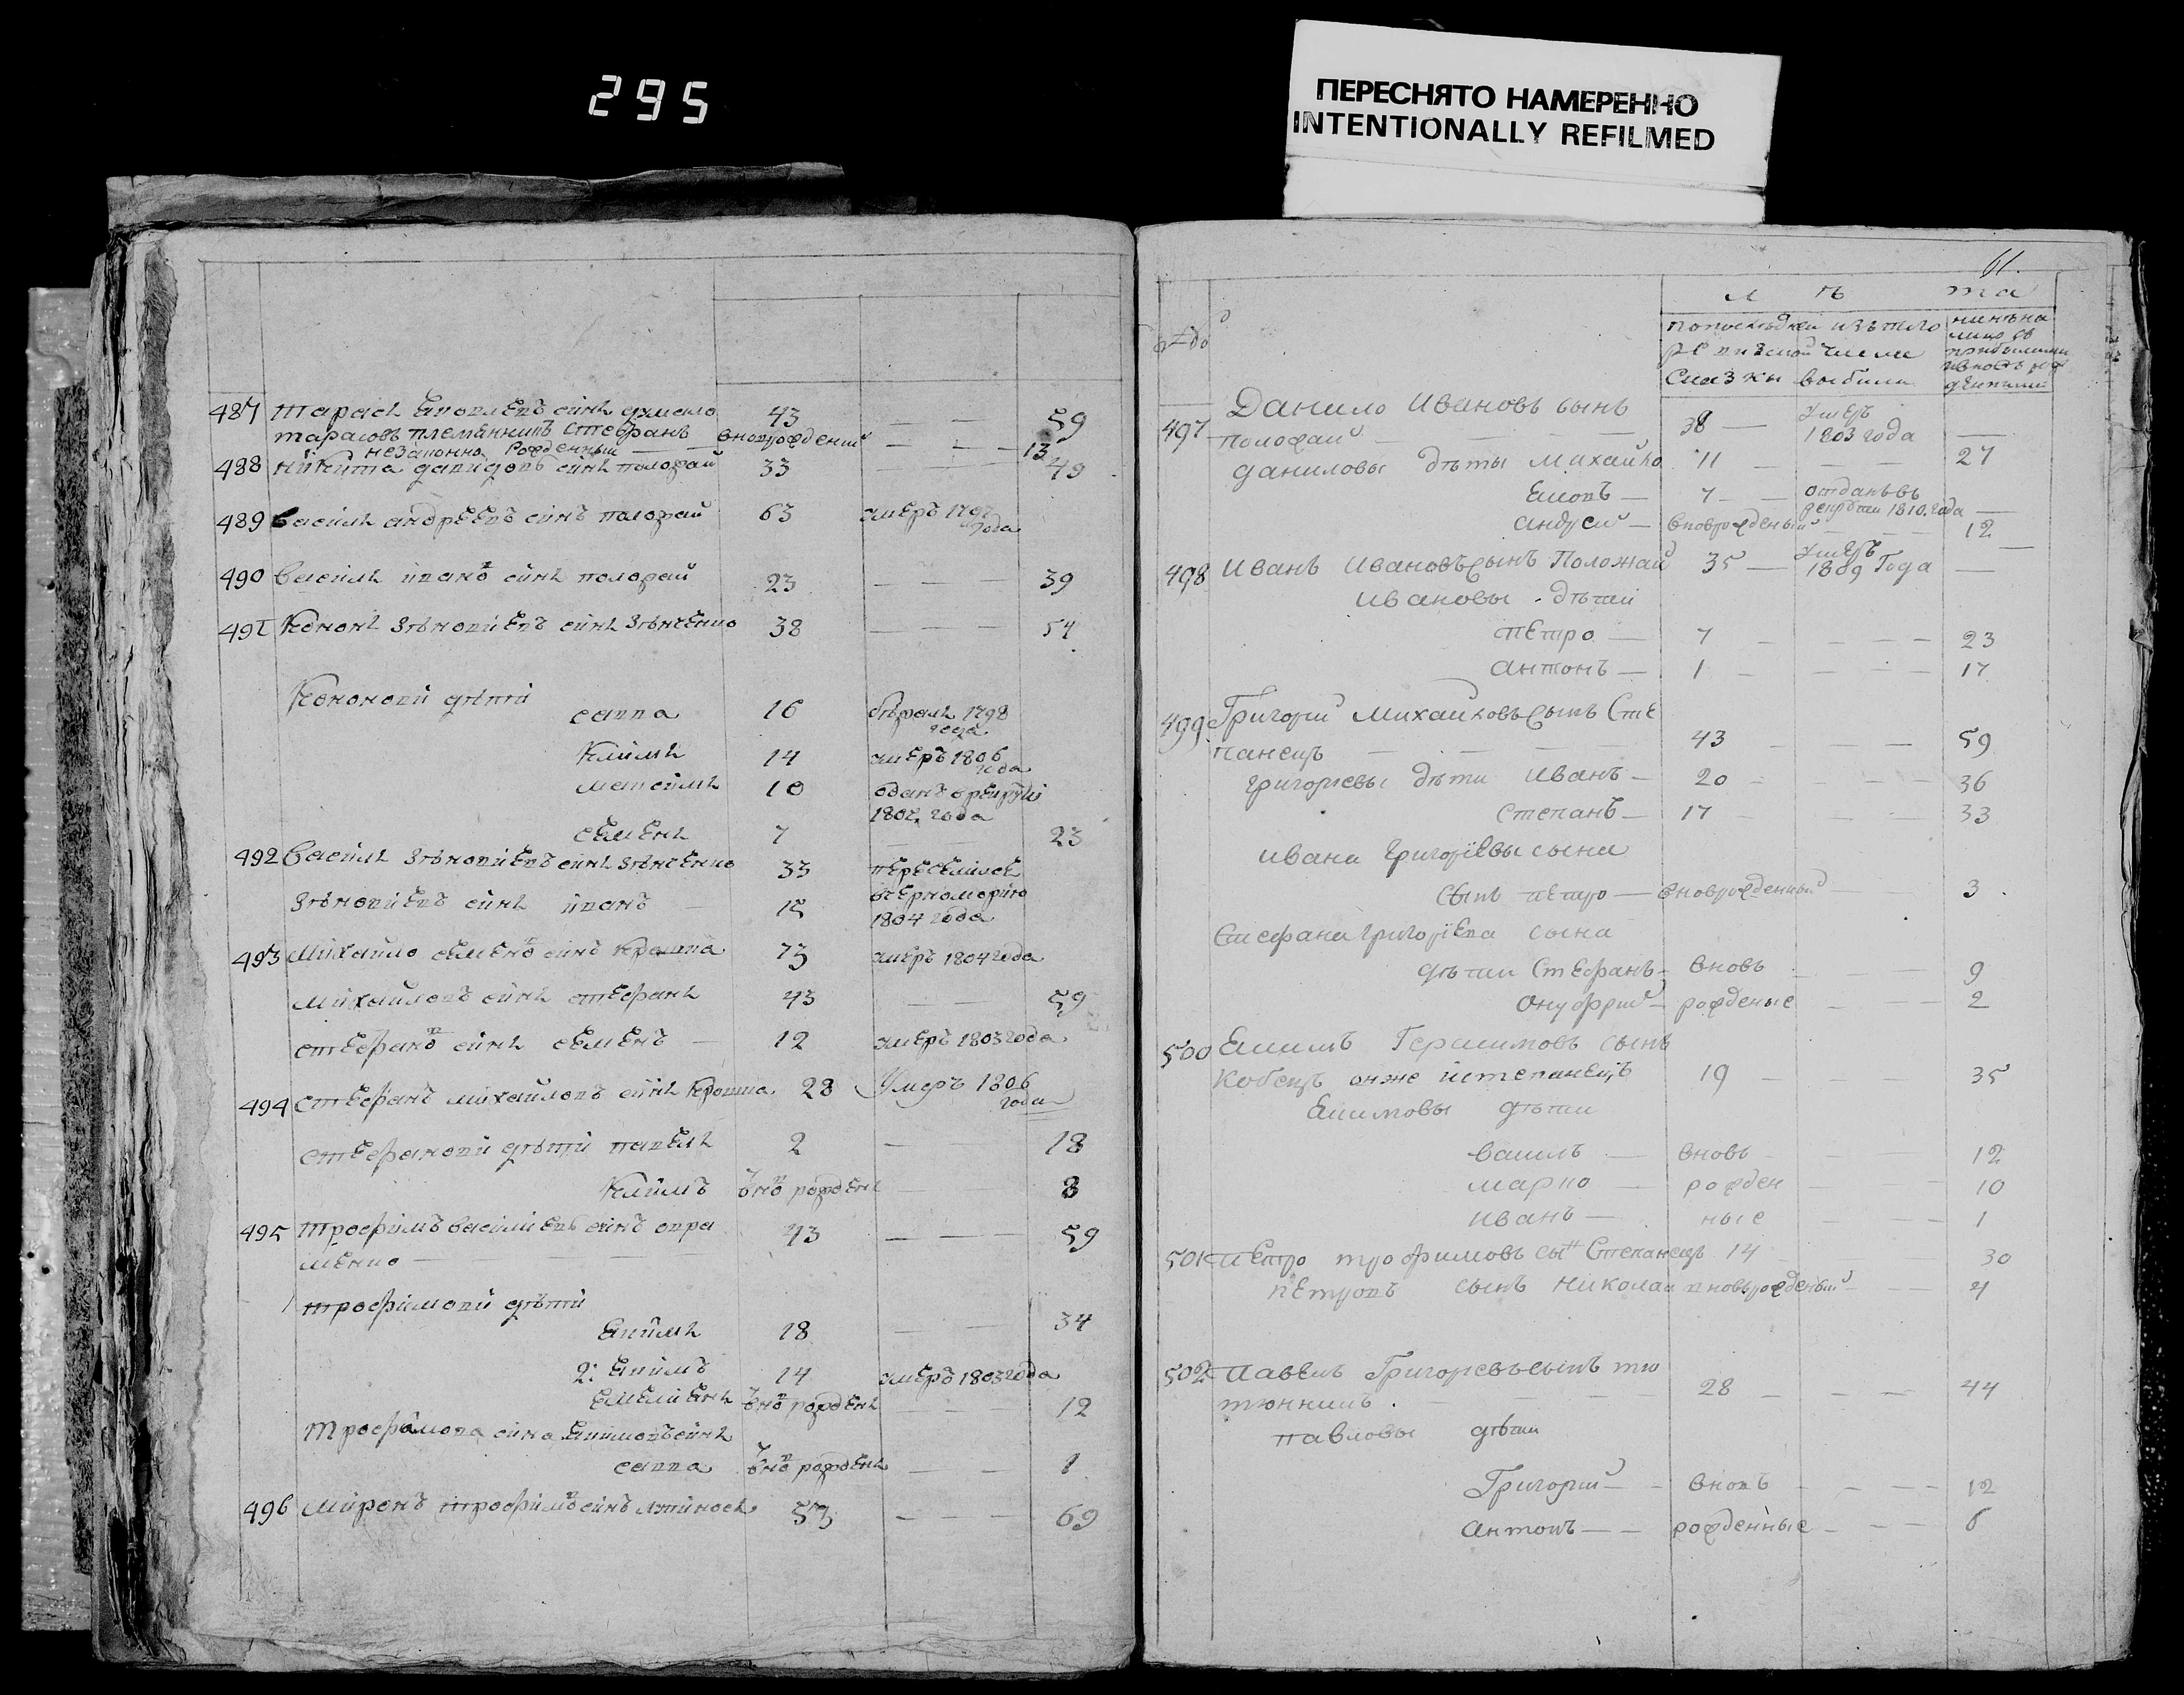 295
ПЕРЕСНЯТО НАМЕРЕННО
INTENTIONALLY REFILMED
487 Тарасъ сынъ 43 59
тарасовъ племянникъ Стефанъ вноворожденный 13
незаконно рожденный
488 Никита давидовъ синъ положай 33 49
489 Василь андреевъ синъ положай 63 умеръ 1797 года
490 Василь ивановъ синъ положай 23 39
491 Кононъ зѣновиевъ синъ зѣнченко 38 54
Кононови дѣти
савва 16 1798 года
Климъ 14 умеръ 1806 года
максимъ 10 года
семенъ 7 23
492 Василь зѣновиевъ синъ зѣнченко 33
зѣновиевъ синъ иванъ 15 1804 года
493 Михайло семеновъ синъ 73 умеръ 1804 года
михайловъ синъ стефанъ 43 59
стефановъ синъ семенъ 12 умеръ 1803 года
494 стефанъ михайловъ синъ 28 Умеръ 1806 года
стефанови дѣти павелъ 2 18
Климъ вновь рожденъ 8
495 трофимъ василиевъ синъ 43 59
трофимови дѣти
Екимъ 18 34
2: Екимъ 14 умеръ 1803 года
Емелиянъ вновь рожденъ 12
Трофимова сина Екимовъ синъ
савва вновь рожденъ 1
496 миронъ трофимовъ синъ 53 69
61.
л ѣ та
попоследней изътого нинѣна
ревизской числе лицо съ
сказки выбили
497 Данило Ивановъ сынъ 38 умеръ 1803 года
положай
даниловы дѣты михайло 11 27
7 отданъ въ рекруты 1810. года
андрей вноворожденый 12
498 Иванъ Ивановъ сынъ Положай 35 умеръ 1809 Года
Ивановы дѣти
петро 7 23
антонъ 1 17
499 Григорий Михайловъ сынъ Сте
панецъ 43 59
григориевы дѣти иванъ 20 36
степанъ 17 33
ивана григориевы сына
сынъ петро вноворожденный 3
Стефана григориева сына
дѣти Стефанъ вновь 9
онуфрий рожденые 2
500 Екимъ Герасимовъ сынъ
Кобецъ онже истепанецъ 19 35
Екимовы дѣти
василь вновь 12
марко рожден 10
иванъ ные 1
501 петро трофимовъ сын Степанецъ 14 30
петровъ сынъ николай вноворожденый 4
502 павелъ Григориевъ сынъ тю
тюнникъ 28 44
павловы дѣти
Григорий вновь 12
антонъ рожденные 6